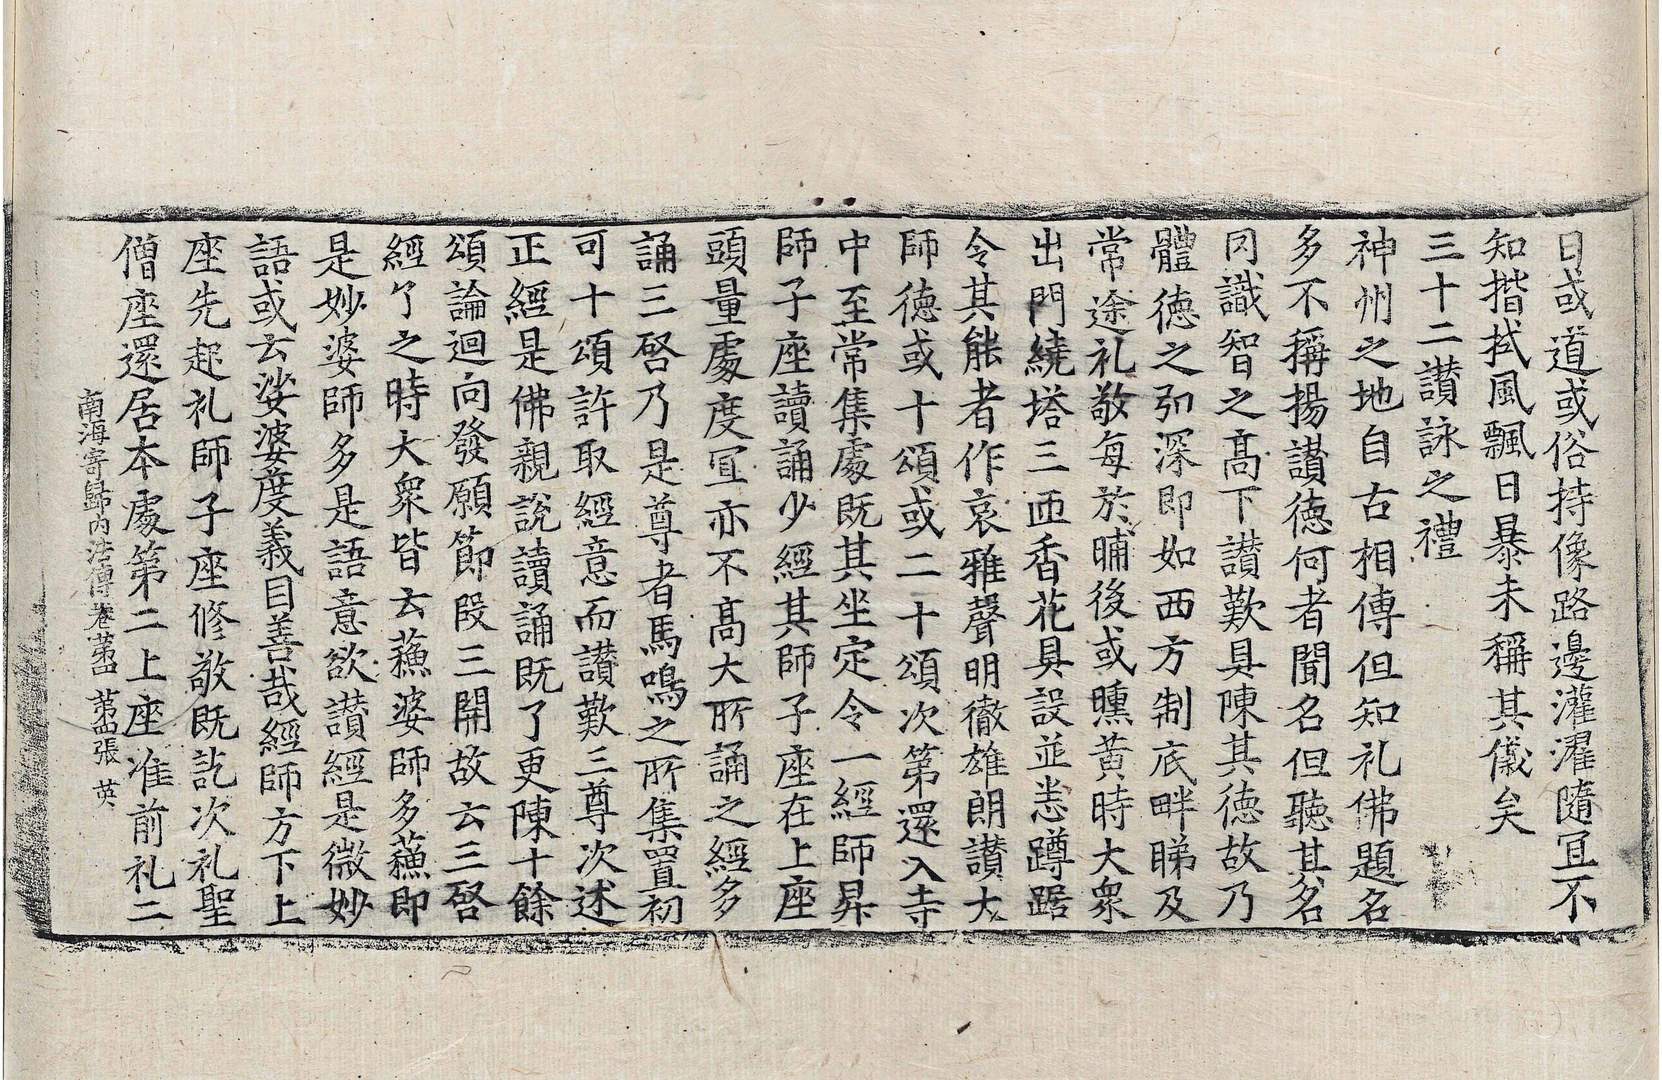 日或道或俗持像路邊灌濯隨冝不
知揩拭風飄日暴未稱其儀矣
三十二讃詠之禮
神州之地自古相傳但知礼佛題名
多不稱揚讃德何者聞名但聽其名
罔識智之髙下讃歎具陳其德故乃
體德之弘深即如西方制底畔睇及
常途礼敬每於晡後或曛黃時大衆
出門繞塔三匝香花具設並悉蹲踞
令其能者作哀雅聲明徹雄朗讃大
師德或十頌或二十頌次第還入寺
中至常集處既其坐定令一經師昇
師子座讀誦少經其師子座在上座
頭量處度冝亦不髙大所誦之經多
誦三啓乃是尊者馬鳴之所集置初
可十頌許取經意而讃歎三尊次述
正經是佛親說讀誦既了更陳十餘
頌論迴向發願節段三開故云三啓
經了之時大衆皆云蘓婆師多蘓即
是妙婆師多是語意欲讃經是微妙
語或云娑婆度義目善哉經師方下上
座先起礼師子座修敬既訖次礼聖
僧座還居本處第二上座准前礼二
南海寄歸內法傳卷第四 第四張 英